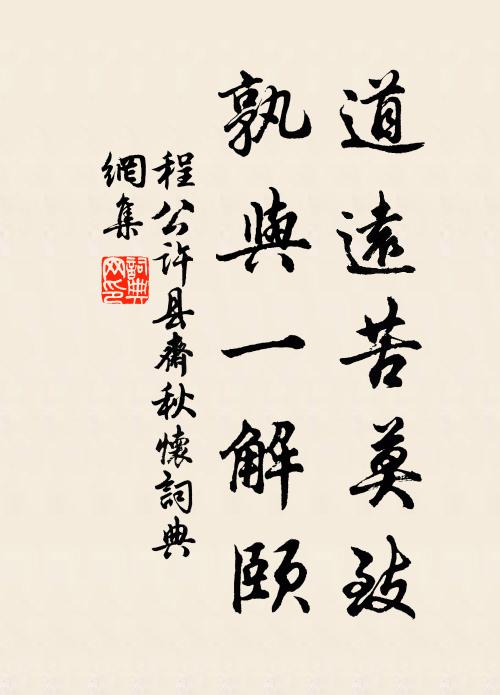 道遠苦莫致
孰與一解頤
程公许县齋秋懷詞典
網集
詞典網印